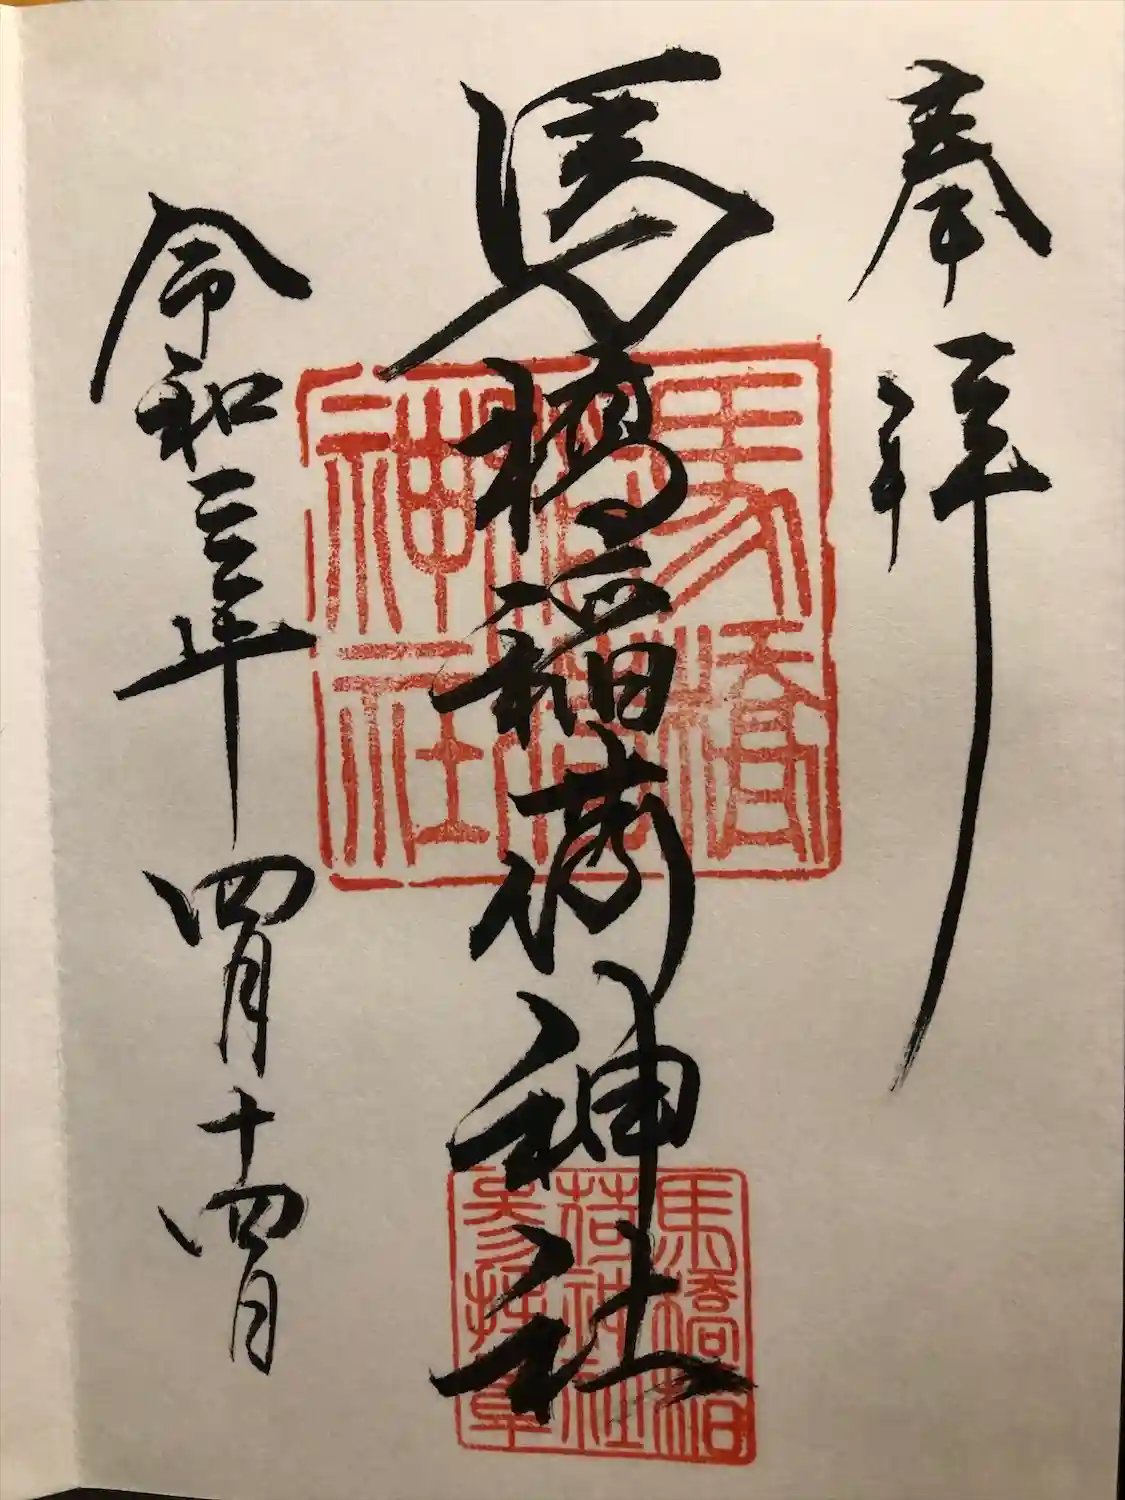 奉拝
馬橋稲荷神社
令和三年四月十四日
馬橋
稲荷
神社
馬橋稲
荷神社
参拝章